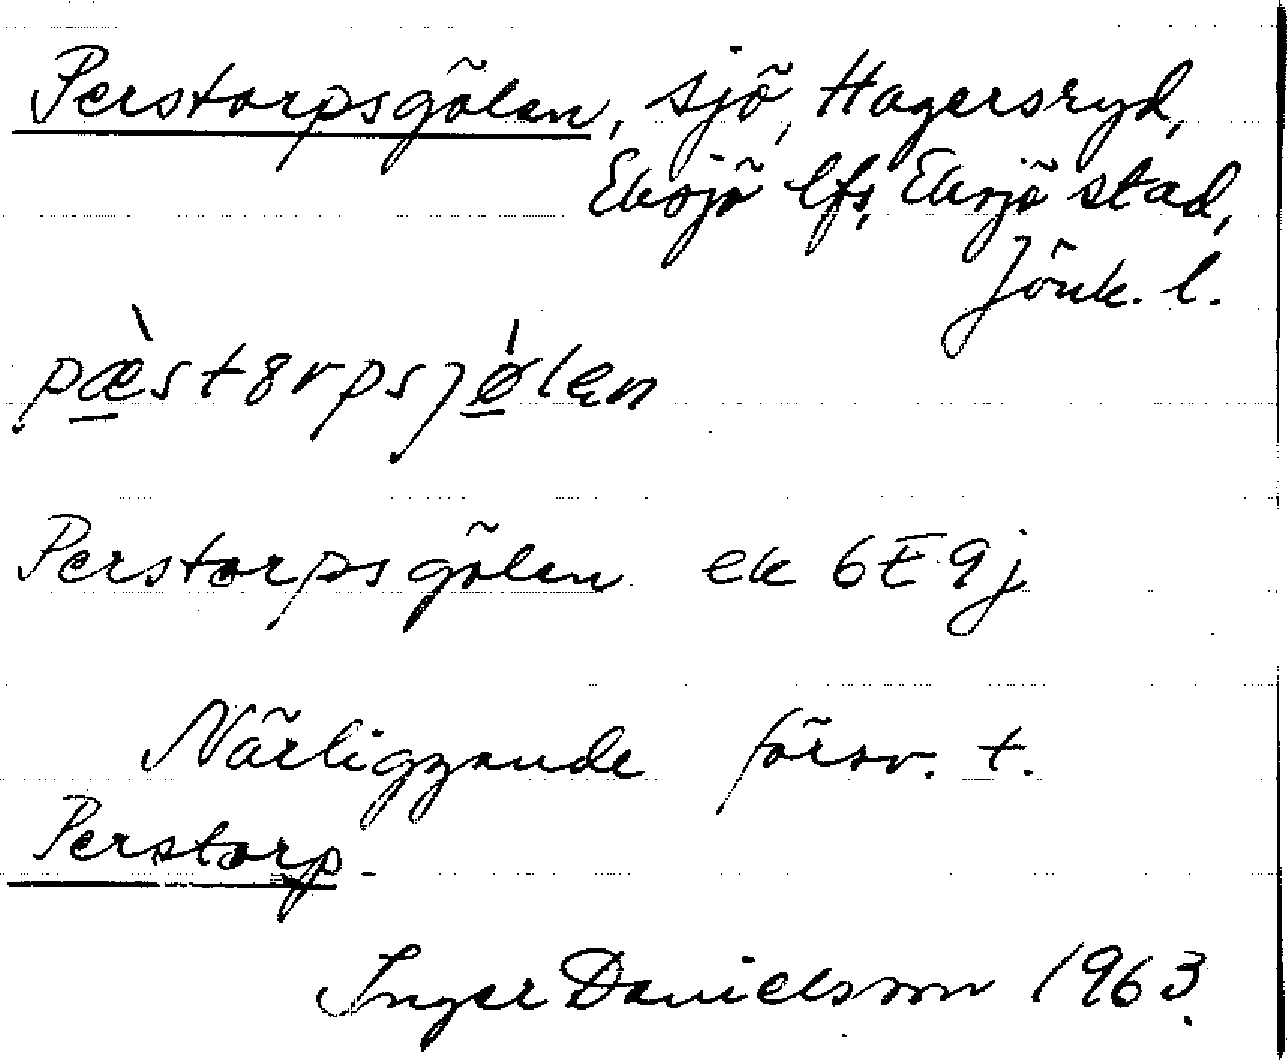 Perstorpsgölen, sjö, Hagersryd,
Eksjö lfs, Eksjö stad,
Jönk. l.
pæ̀st8rpsjǿlen
Perstorpsgölen ek 6E9j
Närliggande försv. t.
Perstorp.
Inger Danielsson 1963.